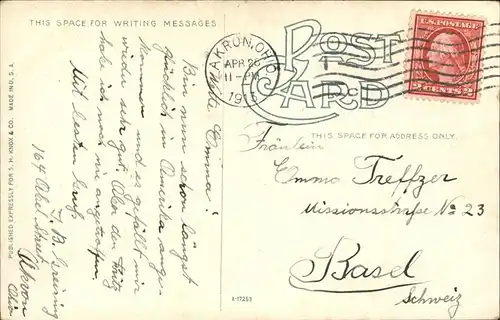 THIS SPACE FOR WRITING MESSAGES
POST CARD
AKRON, OHIO
APR 26
11-PM
1915
U.S. POSTAGE
2 CENTS 2
THIS SPACE FOR ADDRESS ONLY
Werte Emma!
Bin nun schon längst
glücklich in Amerika ange-
kommen und es gefällt mir
wieder sehr gut. Aber den Fritz
habe ich noch nie angetroffen.
Mit besten Gruß
F. B.
164 Abel Street
Akron
Ohio
Fräulein
Emma Treffzer
Missionsstraße No 23
Basel
Schweiz
A-17253
PUBLISHED EXPRESSLY FOR S. H. KNOX & CO. MADE IN U. S. A.